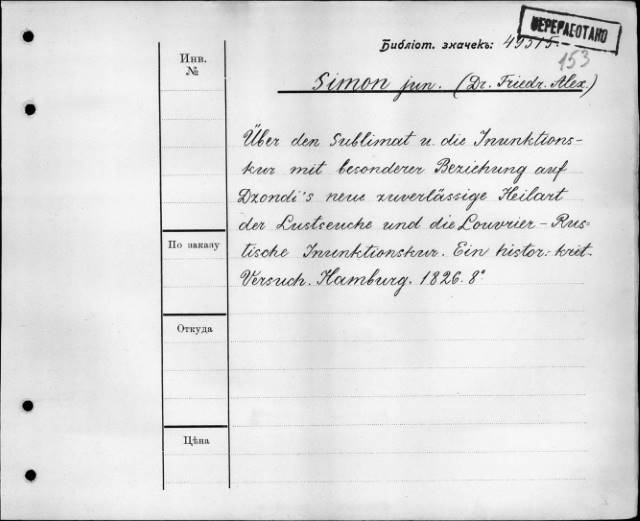 ПЕРЕРАБОТАНО
Библіот. значекъ: 49515.
153
Инв.
№
Simon jun. (Dr. Friedr. Alex.)
Über den Sublimat u. die Inunktions-
kur mit besonderer Beziehung auf
Dzondi's neue zuverlässige Heilart
der Lustseuche und die Louvrier-Rus-
tische Inunktionskur. Ein histor.-krit.
Versuch. Hamburg. 1826. 8°
По заказу
Откуда
Цѣна